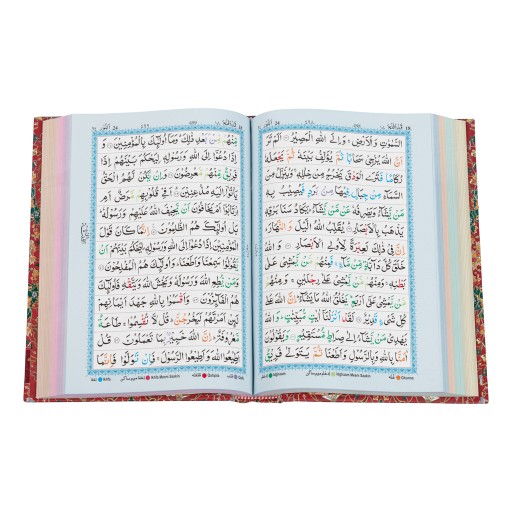 السَّمٰوٰتِ وَالْاَرْضِ ۚ وَاِلَى اللّٰهِ الْمَصِيْرُ ۝ اَلَمْ تَرَ
اَنَّ اللّٰهَ يُزْجِيْ سَحَابًا ثُمَّ يُؤَلِّفُ بَيْنَهٗ ثُمَّ يَجْعَلُهٗ
رُكَامًا فَتَرَى الْوَدْقَ يَخْرُجُ مِنْ خِلٰلِهٖ ۚ وَيُنَزِّلُ مِنَ
السَّمَآءِ مِنْ جِبَالٍ فِيْهَا مِنْۢ بَرَدٍ فَيُصِيْبُ بِهٖ
مَنْ يَّشَآءُ وَيَصْرِفُهٗ عَنْ مَّنْ يَّشَآءُ ؕ يَكَادُ سَنَا بَرْقِهٖ
يَذْهَبُ بِالْاَبْصَارِ ۝ يُقَلِّبُ اللّٰهُ الَّيْلَ وَالنَّهَارَ ؕ
اِنَّ فِيْ ذٰلِكَ لَعِبْرَةً لِّاُولِي الْاَبْصَارِ ۝ وَاللّٰهُ
خَلَقَ كُلَّ دَآبَّةٍ مِّنْ مَّآءٍ ۚ فَمِنْهُمْ مَّنْ يَّمْشِيْ عَلٰى
بَطْنِهٖ ۚ وَمِنْهُمْ مَّنْ يَّمْشِيْ عَلٰى رِجْلَيْنِ ۚ وَمِنْهُمْ
مَّنْ يَّمْشِيْ عَلٰٓى اَرْبَعٍ ؕ يَخْلُقُ اللّٰهُ مَا يَشَآءُ ؕ اِنَّ اللّٰهَ عَلٰى
كُلِّ شَيْءٍ قَدِيْرٌ ۝ لَقَدْ اَنْزَلْنَآ اٰيٰتٍ مُّبَيِّنٰتٍ ؕ وَاللّٰهُ
يَهْدِيْ مَنْ يَّشَآءُ اِلٰى صِرَاطٍ مُّسْتَقِيْمٍ ۝ وَيَقُوْلُوْنَ
اٰمَنَّا بِاللّٰهِ وَبِالرَّسُوْلِ وَاَطَعْنَا ثُمَّ يَتَوَلّٰى فَرِيْقٌ
مِّنْهُمْ مِّنْۢ بَعْدِ ذٰلِكَ ؕ وَمَآ اُولٰٓئِكَ بِالْمُؤْمِنِيْنَ ۝ وَ
اِذَا دُعُوْٓا اِلَى اللّٰهِ وَرَسُوْلِهٖ لِيَحْكُمَ بَيْنَهُمْ اِذَا
فَرِيْقٌ مِّنْهُمْ مُّعْرِضُوْنَ ۝ وَاِنْ يَّكُنْ لَّهُمُ الْحَقُّ
يَاْتُوْٓا اِلَيْهِ مُذْعِنِيْنَ ۝ اَفِيْ قُلُوْبِهِمْ مَّرَضٌ اَمِ
ارْتَابُوْٓا اَمْ يَخَافُوْنَ اَنْ يَّحِيْفَ اللّٰهُ عَلَيْهِمْ وَرَسُوْلُهٗ ؕ
بَلْ اُولٰٓئِكَ هُمُ الظّٰلِمُوْنَ ۝ اِنَّمَا كَانَ قَوْلَ
الْمُؤْمِنِيْنَ اِذَا دُعُوْٓا اِلَى اللّٰهِ وَرَسُوْلِهٖ لِيَحْكُمَ بَيْنَهُمْ اَنْ
يَّقُوْلُوْا سَمِعْنَا وَاَطَعْنَا ؕ وَاُولٰٓئِكَ هُمُ الْمُفْلِحُوْنَ ۝
وَمَنْ يُّطِعِ اللّٰهَ وَرَسُوْلَهٗ وَيَخْشَ اللّٰهَ وَيَتَّقْهِ فَاُولٰٓئِكَ
هُمُ الْفَآئِزُوْنَ ۝ وَاَقْسَمُوْا بِاللّٰهِ جَهْدَ اَيْمَانِهِمْ
لَئِنْ اَمَرْتَهُمْ لَيَخْرُجُنَّ ؕ قُلْ لَّا تُقْسِمُوْا ۚ طَاعَةٌ
مَّعْرُوْفَةٌ ؕ اِنَّ اللّٰهَ خَبِيْرٌۢ بِمَا تَعْمَلُوْنَ ۝ قُلْ
اَطِيْعُوا اللّٰهَ وَاَطِيْعُوا الرَّسُوْلَ ۚ فَاِنْ تَوَلَّوْا فَاِنَّمَا